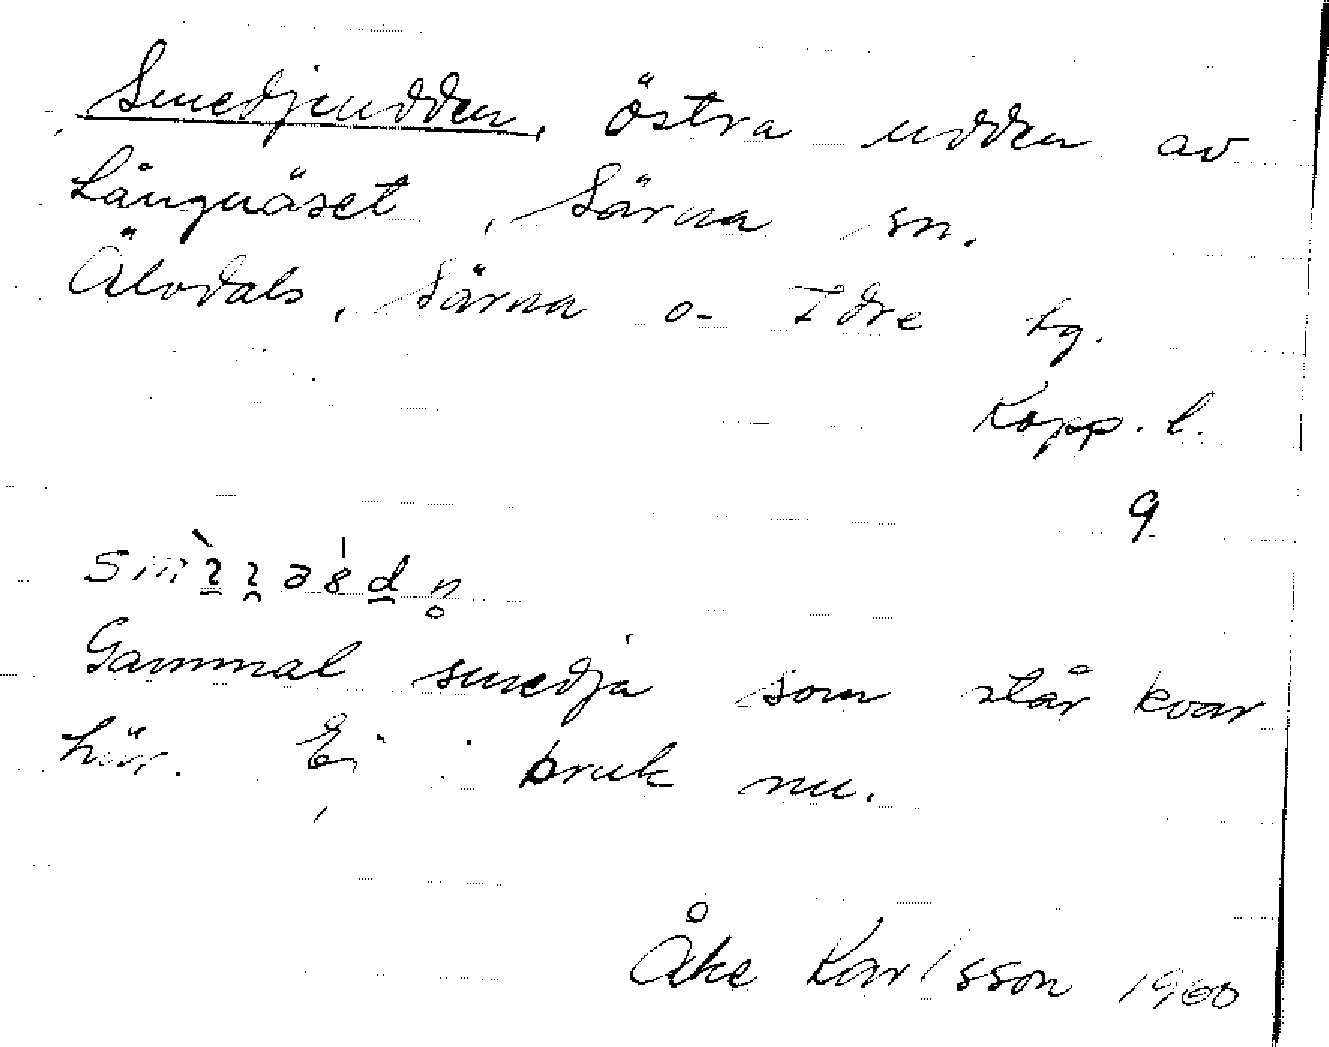 Smedjeudden, östra udden av
Långnäset, Särna sn.
Älvdals, Särna o- Idre tg.
Kopp. l.
9
Gammal smedja som står kvar
här. Ej i bruk nu.
Åke Karlsson 1960